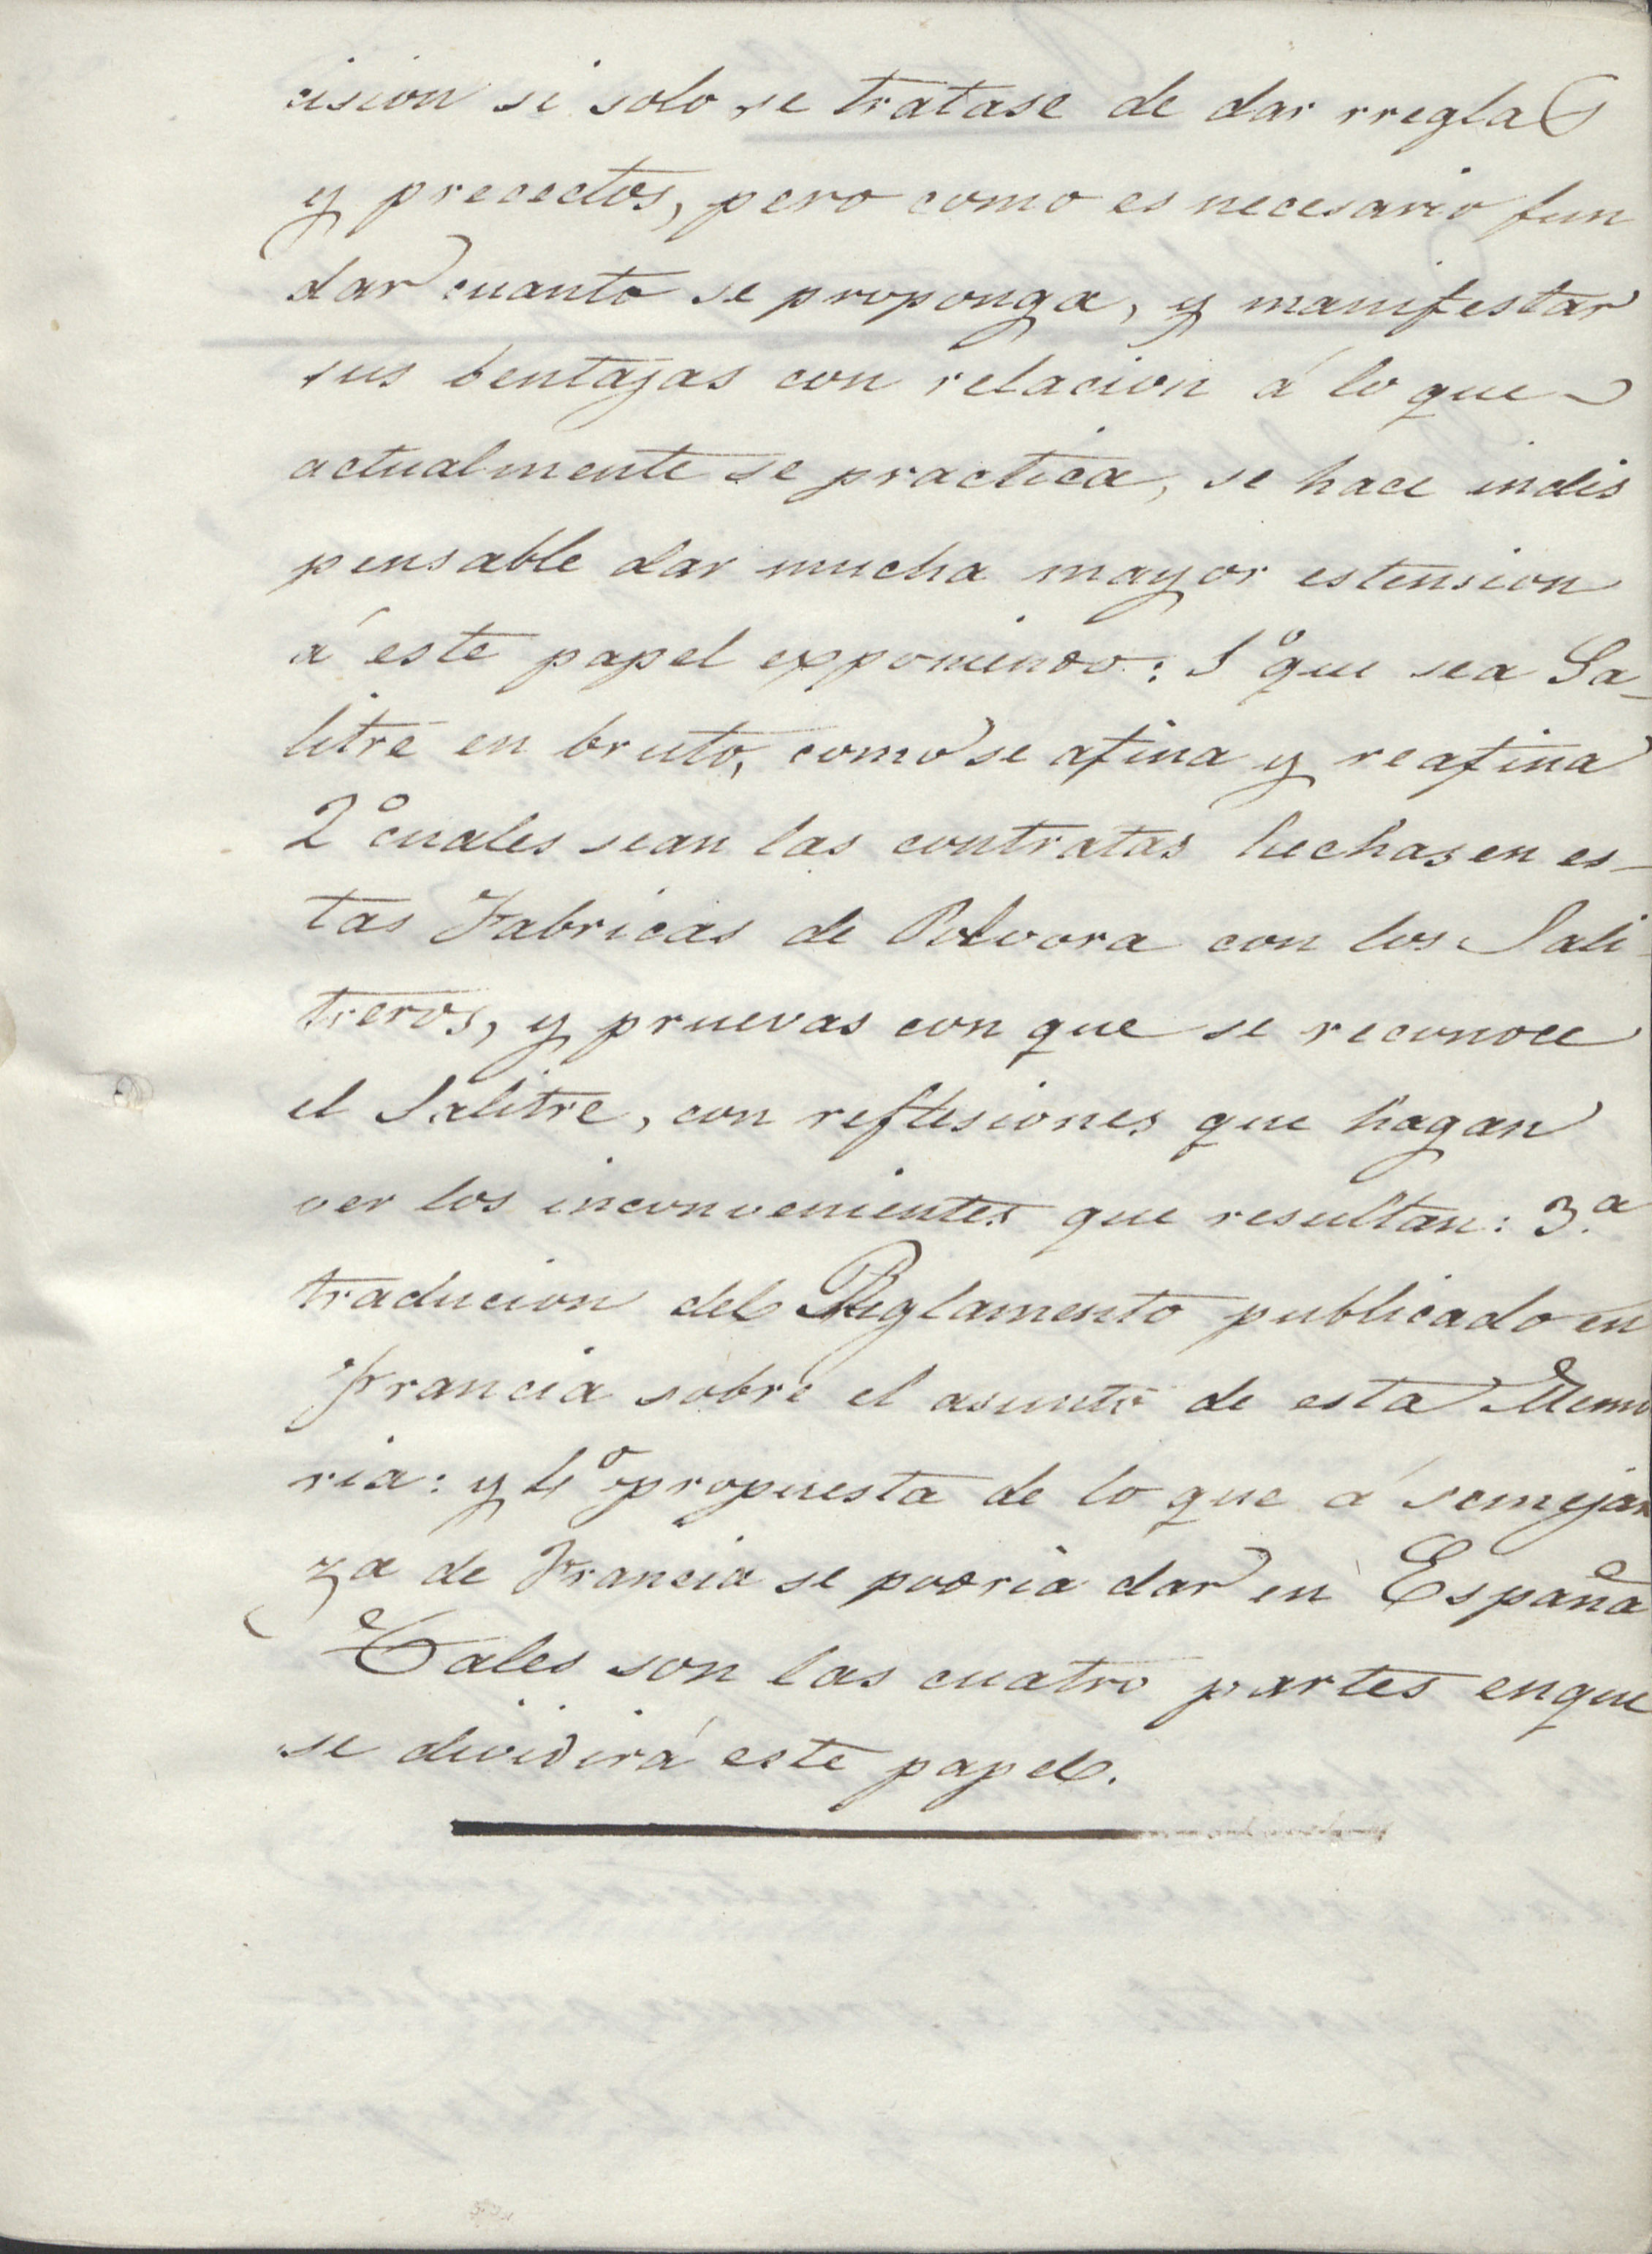 cision si solo se tratase de dar rreglas
y precectos, pero como es necesario fun
dar cuanto se proponga, y manifestar
sus bentajas con relacion á lo que
actualmente se practica, se hace indis
pensable dar mucha mayor estension
á este papel exponiendo: 1º que sea Sa-
litre en bruto, como se afina y reafina
2º cuales sean las contratas hechas en es-
tas Fabricas de Polvora con los Sali-
treros, y pruevas con que se reconoce
el Salitre, con reflesiones que hagan
ver los inconvenientes que resultan: 3.ª
traducion del Reglamento publicado en
Francia sobre el asunto de esta Memo
ria: y 4º propuesta de lo que á semejan
za de Francia se podria dar en España
Tales son las cuatro partes en que
se dividirá este papel.